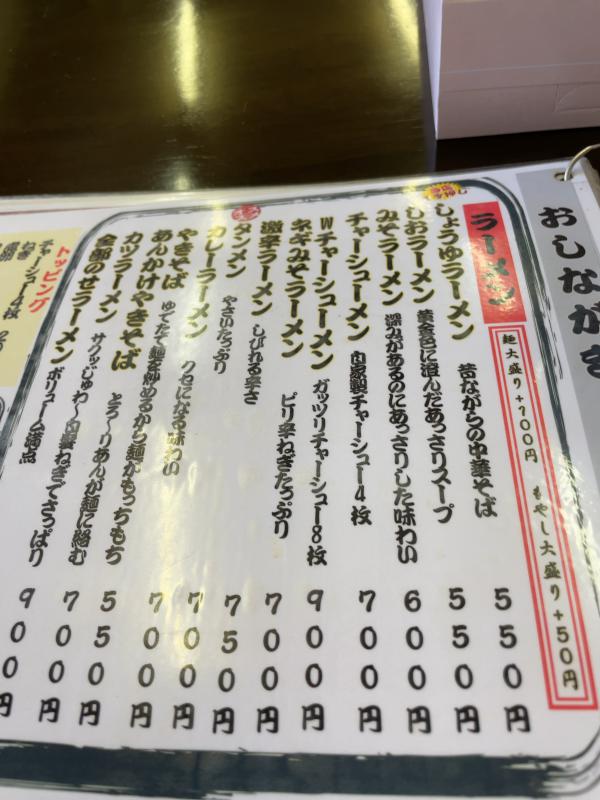 おしながき
ラーメン
麺大盛り+100円 もやし大盛り+50円
しょうゆラーメン 昔ながらの中華そば 550円
しおラーメン 黄金色に澄んだあっさりスープ 550円
みそラーメン 深みがあるのにあっさりした味わい 600円
チャーシューメン 自家製チャーシュー4枚 700円
Wチャーシューメン ガッツリチャーシュー8枚 900円
ネギみそラーメン ピリ辛ねぎたっぷり 700円
激辛ラーメン しびれる辛さ 750円
タンメン やさいたっぷり 700円
カレーラーメン クセになる味わい 700円
やきそば ゆでたて麺を炒めるから麺がもっちもち 550円
あんかけやきそば とろ〜りあんが麺に絡む 700円
カツラーメン サクッじゅわ〜肉厚ねぎでさっぱり 900円
全部のせラーメン ボリューム満点
トッピング
チャーシュー4枚
ねぎ